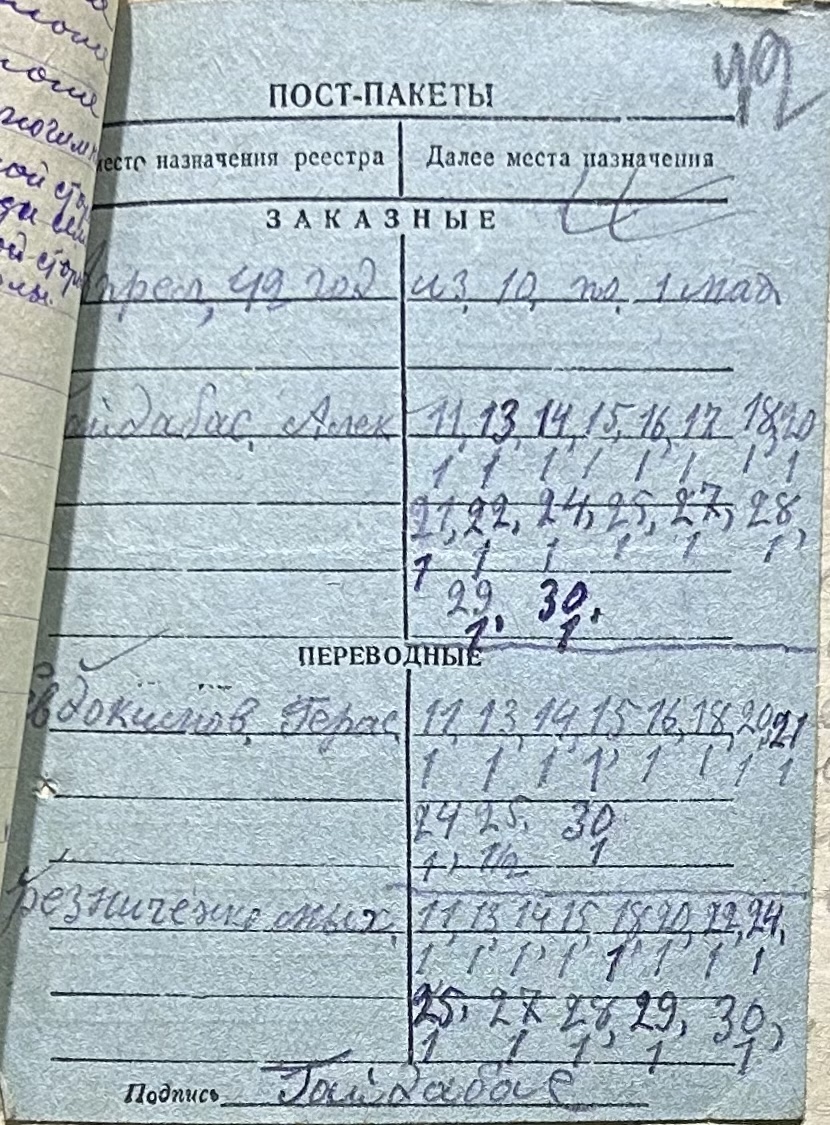 42
ПОСТ-ПАКЕТЫ
место назначения реестра Далее места назначения
ЗАКАЗНЫЕ
Апрел, 49 год из, 10, по, 1 мая
Гайдабас, Алек 11, 13, 14, 15, 16, 17 18, 20
1 1 1 1 1 1 1 1
21, 22, 24, 25, 27, 28,
1 1 1 1 1 1
29, 30,
1 1
ПЕРЕВОДНЫЕ
Евдокимов, Герас, 11, 13, 14, 15 16, 18, 20, 21
1 1 1 1 1 1 1 1
24 25, 30
1, 1/2 1
Резниченко мых, 11, 13 14 15, 18, 20, 22, 24,
1 1 1 1 1 1 1 1
25, 27 28, 29, 30,
1 1 1 1 1
Подпись Гайдабас